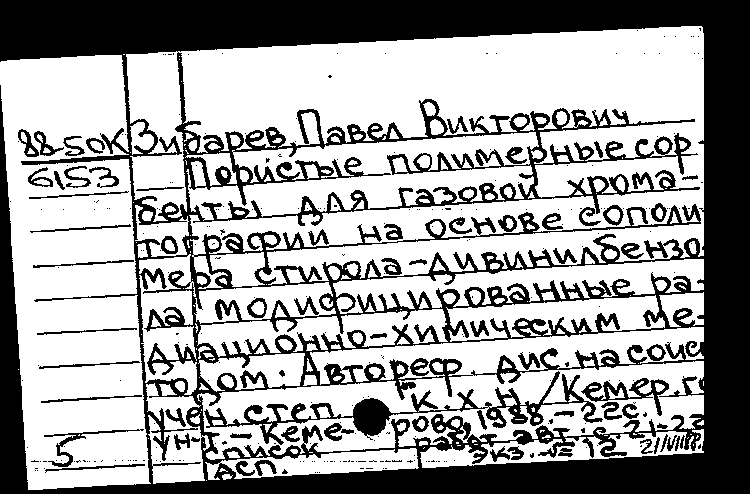 88-50К Зибарев, Павел Викторович
6153 Пористые полимерные сор-
бенты для газовой хрома-
тографии на основе сополи
мера стирола-дивинилбензо
ла, модифицированные ра-
диационно-химическим ме-
тодом: Автореф. дис. на соис
учен. степ. к.х.н. / Кемер. го
ун-т. - Кеме- рово, 1988. - 22с.
список работ авт.: с. 21-22
5 дсп. экз. 12